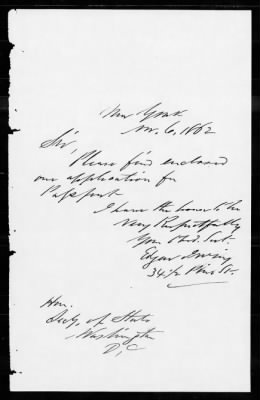 New York
Nov. 6, 1862
Sir,
Please find enclosed
one application for
Passport
I have the honor to be
Very Respectfully
Your Obd. Svt.
Edgar Irving
34 1/2 Pine St.
Hon.
Secty. of State
Washington
D,C